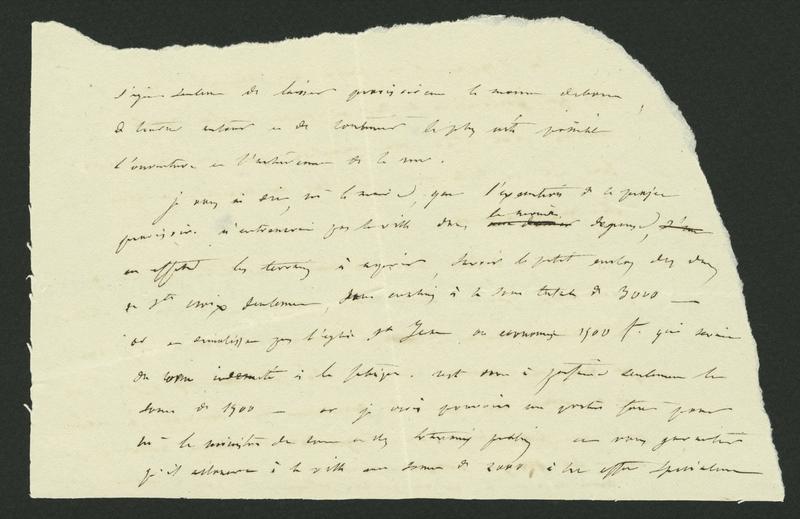 seulement de laisser provisoirement la maison
de tourner autour et de continuer le plus vite possible
l'ouverture et l'achèvement de la rue.
je vous ai dit, Mr le maire, que l'exécution de ce projet
provisoire n'entrainerait pas la ville dans la moindre dépense,
en effet les terrains à acquérir, savoir le petit enclos des
de Ste croix seulement, sont à la somme totale de 3000 —
or en pas l'église St Jean on économise 1500 f. qui
indemnité à la fabrique. reste donc à parfaire seulement la
somme de 1500 — or je crois pouvoir me porter fort pour
Mr le ministre du et des travaux publics et vous garantir
qu'il allouera à la ville une somme de 2000 à cet effet spécialement